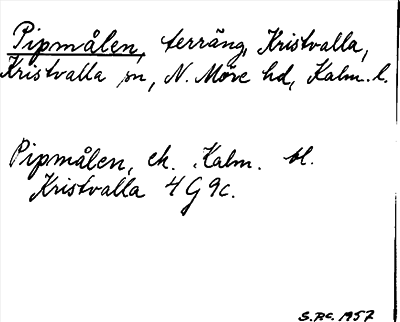 Pipmålen, terräng, Kristvalla,
Kristvalla sn, N. Möre hd, Kalm. l.
Pipmålen, ek. Kalm. bl.
Kristvalla 4 G 9c.
1957